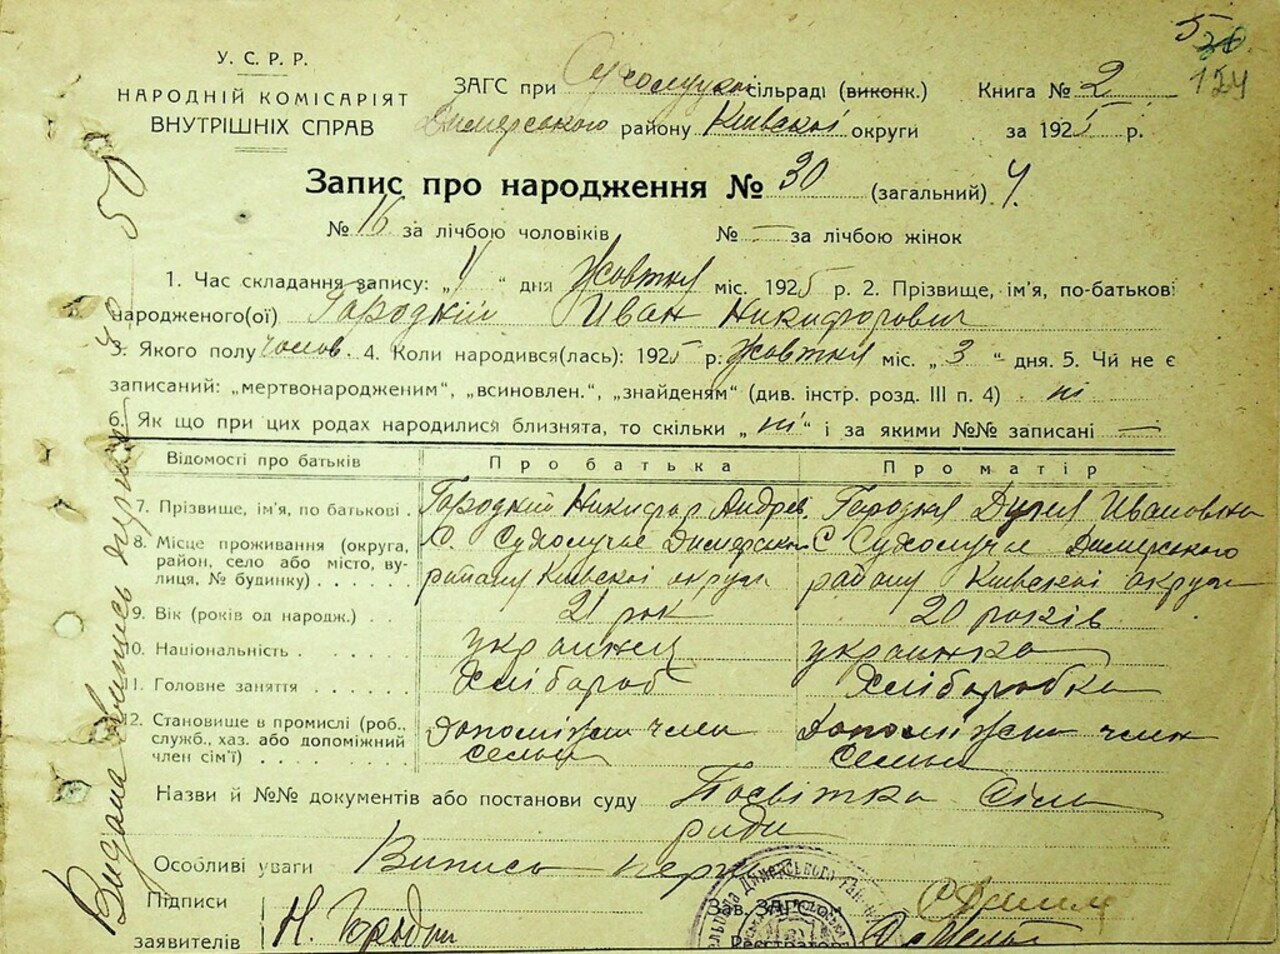 5
20
124
У. С. Р. Р.
НАРОДНІЙ КОМІСАРІЯТ
ВНУТРІШНІХ СПРАВ
ЗАГС при Сухолуцкі сільраді (виконк.) Книга № 2
Димерського району Київскої округи за 1925 р.
Запис про народження № 30 (загальний) Ч.
№ 16 за лічбою чоловіків № — за лічбою жінок
1. Час складання запису: „4“ дня Жовтня міс. 1925 р. 2. Прізвище, ім'я, по-батькові
народженого(ої) Городкій Иван Никифорович
3. Якого полу чолов. 4. Коли народився(лась): 1925 р. Жовтня міс. „3“ дня. 5. Чи не є
записаний: „мертвонародженим“, „всиновлен.“, „знайденям“ (див. інстр. розд. III п. 4) ні
6. Як що при цих родах народилися близнята, то скільки „ні“ і за якими №№ записані —
Відомості про батьків Про батька Про матір
7. Прізвище, ім'я, по батькові Городкій Никифор Андрев. Городкая Ивановна
8. Місце проживання (округа, район, село або місто, вулиця, № будинку) С. Сухолучье Димерського С Сухолучье Димерського
району Київскої округи району Київскої округи
9. Вік (років од народж.) 21 рок 20 років
10. Національність украинец украинка
11. Головне заняття Хлібороб Хліборобка
12. Становище в промислі (роб., служб., хаз. або допоміжний член сім'ї) Допоміжни член Допоміжни член
семьи семьи
Назви й №№ документів або постанови суду Посвітка Сіль
ради
Особливі уваги Випись перш
Підписи
заявителів Н.
Зав. ЗАГС'ом
Реєстратор
Видана випись
50